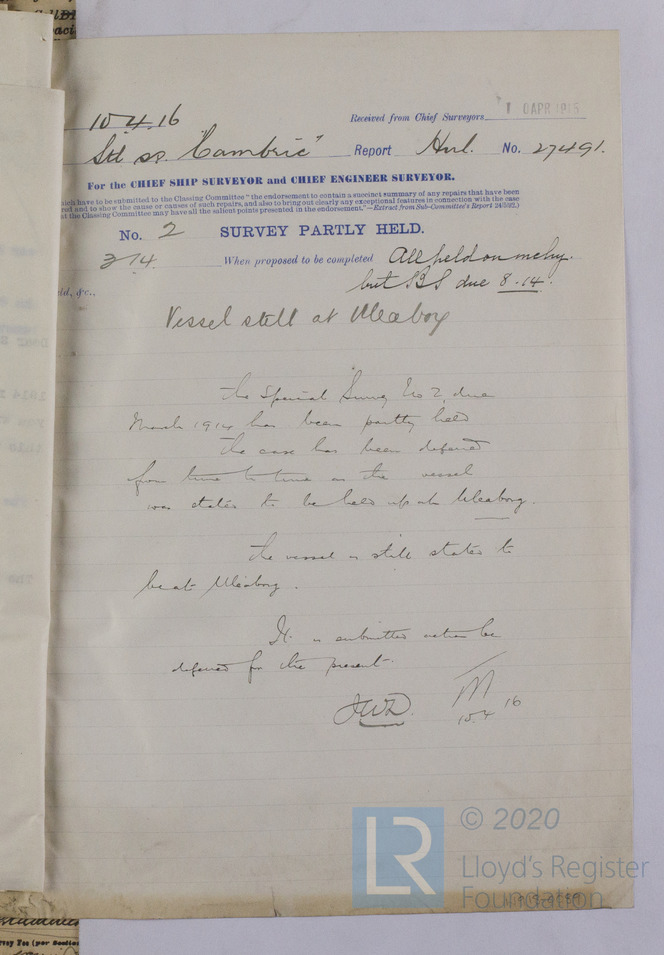 10.4.16
Received from Chief Surveyors
10 APR 1916
Stl ss. "Cambric" Report Hul. No. 27491.
For the CHIEF SHIP SURVEYOR and CHIEF ENGINEER SURVEYOR.
which have to be submitted to the Classing Committee "the endorsement to contain a succinct summary of any repairs that have been
red and to show the cause or causes of such repairs, and also to bring out clearly any exceptional features in connection with the case
at the Classing Committee may have all the salient points presented in the endorsement."—Extract from Sub-Committee's Report 24/3/92.)
No. 2 SURVEY PARTLY HELD.
3/14. When proposed to be completed All held on mchy.
but BS due 8.14.
ld, &c.,
Vessel still at Uleaborg
The Special Survey No 2, due
March 1914 has been partly held
The case has been deferred
from time to time as the vessel
was stated to be held up at Uleaborg.
The vessel is still stated to
be at Uleaborg.
It is submitted action be
deferred for the present.
JWD. M
10.4.16
LR
© 2020
Lloyd's Register
Foundation